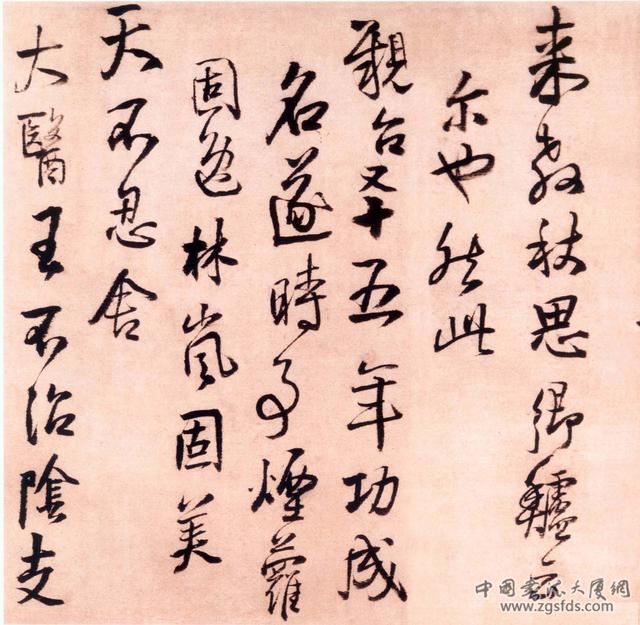 来教秋思鄉鱸云
尔也然此
親台十五年功成
名遂時煙蘿
固色林嵐固美
天不忍舍
大醫王不治陰支
中国书法大厦網
www.zgsfds.com